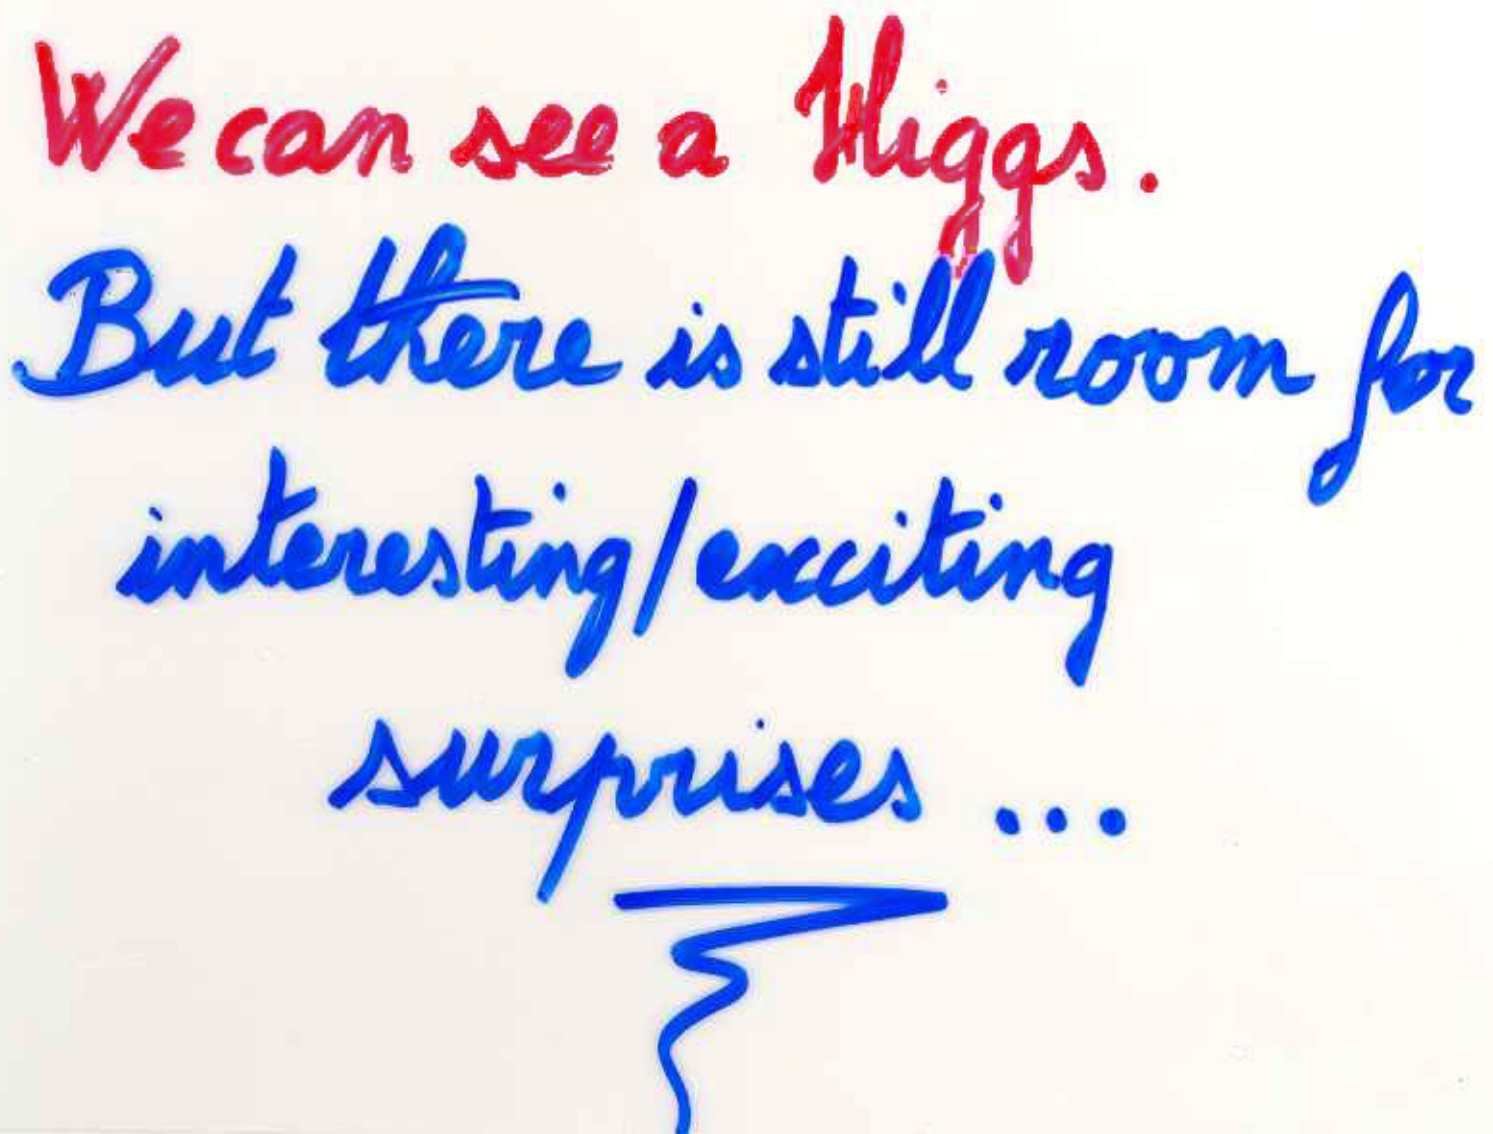 We can see a Higgs.
But there is still room for
interesting/exciting
surprises ...